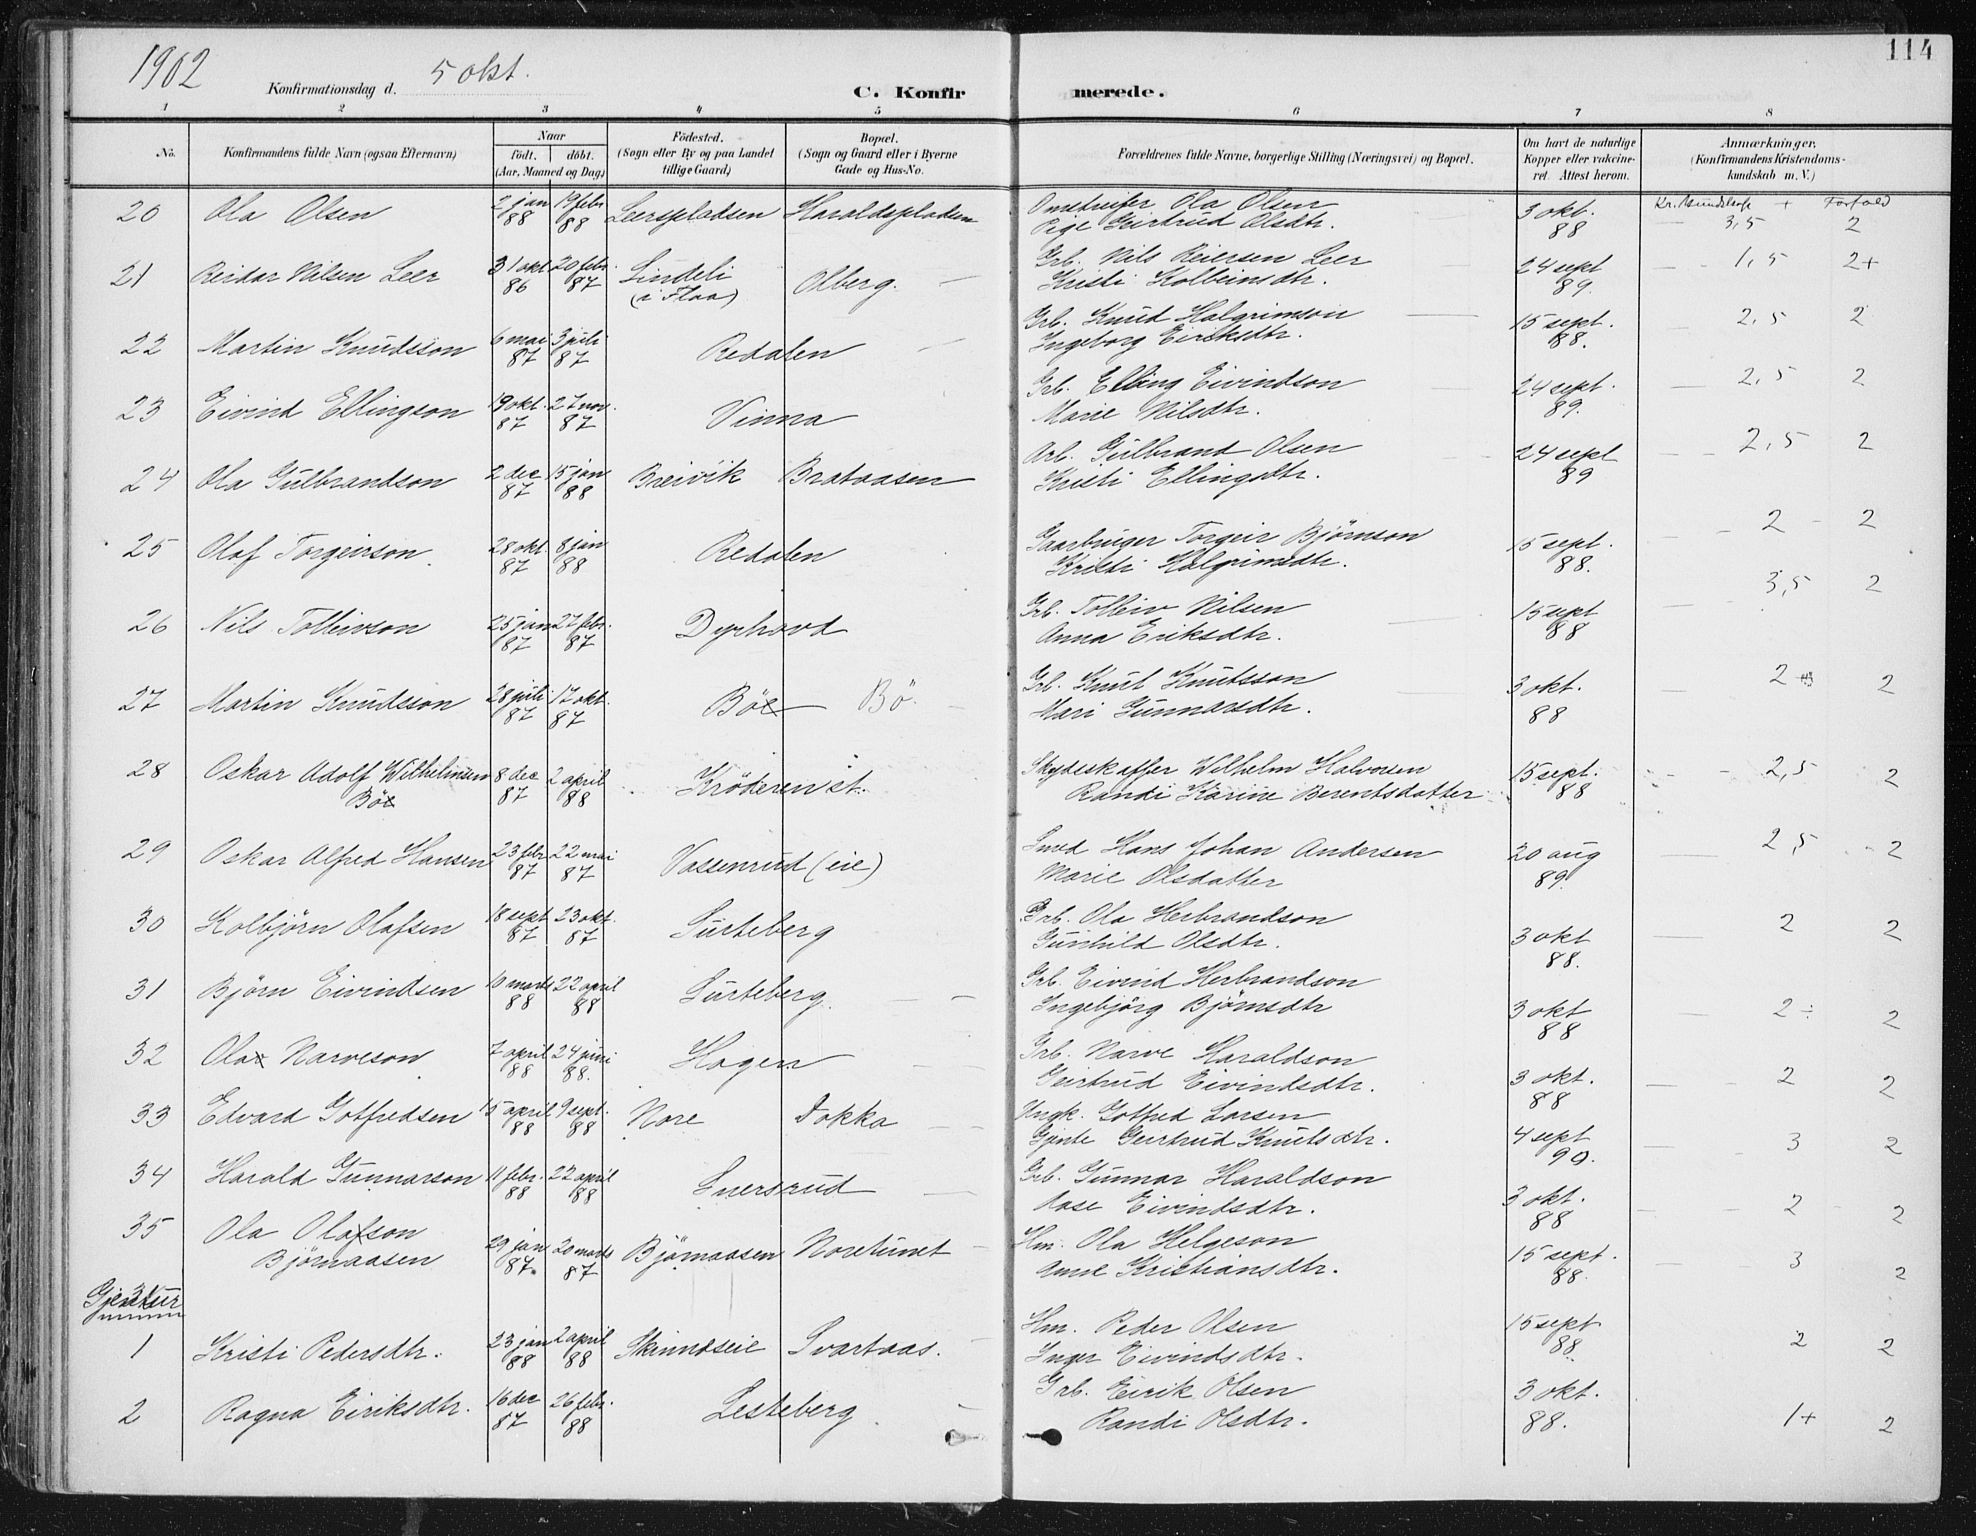 1902 Konfirmationsdag d. 5 okt. C. Konfirmerede. 114
1 2 3 4 5 6 7 8
No. Konfirmandens fulde Navn (ogsaa Efternavn) Naar födt. döbt. (Aar, Maaned og Dag) Födested. (Sogn eller By og paa Landet tillige Gaard) Bopæl. (Sogn og Gaard eller i Byerne Gade og Hus-No. Forældrenes fulde Navne, borgerlige Stilling (Næringsvei) og Bopæl. Om havt de naturlige Kopper eller vakcineret. Attest herom. Anmærkninger, (Konfirmandens Kristendomskundskab m. V.)
20 Ola Olsen 2 jan 88 19 febr 88 Leerspladsen Haraldspladsen Ola Olsen Pige Geirtrud Olsdtr. 3 okt. 88 3,5 2
21 Reidar Nilsen Leer 31 okt 86 20 febr. 87 Lindeli (i Flaa) Olberg. Grb. Nils Reiersen Leer Kristi Kolbeinsdtr. 24 sept 89. 1,5 2+
22 Martin Knudsson 6 mai 87 3 juli 87 Redalen Grb. Knud Halgrimson Ingeborg Eiriksdtr. 15 sept. 88. 2,5 2
23 Eivind Ellingson 19 okt. 87 27 nov. 87 Vinna Grb. Elling Eivindson Marie Nilsdtr. 24 sept. 89. 2,5 2
24 Ola Gulbrandson 2 dec 87 15 jan 88 Breivik Brataasen Arb. Gulbrand Olsen Kristi Ellingsdtr. 24 sept 89 2,5 2
25 Olaf Torgeirson 28 okt. 87 8 jan 88 Redalen Gaardbruger Torgeir Björnson Kristi Halgrimsdtr. 15 sept. 88. 2 2
26 Nils Tolleivson 25 jan 87 27 febr. 87 Dyrhovd Grb. Tolleiv Nilsen Anna Eriksdtr. 15 sept 88 3,5 2
27 Martin Knudsson 28 juli 87 17 okt. 87 Böe Bö. Grb. Knut Knutsson Mari Gunnarsdtr. 3 okt. 88 2 2
28 Oskar Adolf Wilhelmsen Böe 8 dec 87 2 april 88 Kröderen st. Skydeskaffer Wilhelm Halvorsen Randi Karine Berentsdatter 15 sept. 88 2,5 2
29 Oskar Alfred Hansen 23 febr 87 22 mai 87 Vassenrud (eie) Smed Hans Johan Andersen Marie Olsdatter 20 aug 89. 2,5 2
30 Kolbjörn Olafsen 18 sept 87 23 okt. 87 Surteberg Grb. Ola Herbrandson Gunhild Olsdtr. 3 okt 88. 2 2
31 Björn Eivindsen 10 marts 88 22 april 88 Surteberg. Grb. Eivind Herbrandson Ingebjörg Björnsdtr 3 okt 88 2 ÷ 2
32 Ola Narveson 7 april 88 24 juni 88. Hagen Grb. Narve Haraldson Geirtrud Eivindsdtr. 3 okt. 88 2 2
33 Edvard Gotfredsen 15 april 88 9 sept. 88 Nore Dokka Ungk. Gotfred Larsen Gjente Geirtrud Knutsdtr. 4 sept 90. 3 2
34 Harald Gunnarson 11 febr. 88 22 april 88 Snersrud Grb. Gunnar Haraldson Aase Eivindsdtr. 3 okt. 88 2 2
35 Ola Olafson Björnaasen 29 jan 87. 20 marts 87 Björnaasen Noretunet Hm. Ola Helgeson Anne Kristiansdtr. 15 sept. 88. 3 2
Gjenter
1 Kristi Pedersdtr. 23 jan 88 2 april 88 Skinnæseie Svartaas. Hm. Peder Olsen Inger Eivindsdtr. 15 sept 88. 2 2
2 Ragna Eiriksdtr. 16 dec 87 26 febr. 88 Lesteberg Grb. Eirik Olsen Randi Olsdtr. 3 okt. 88. 1+ 2